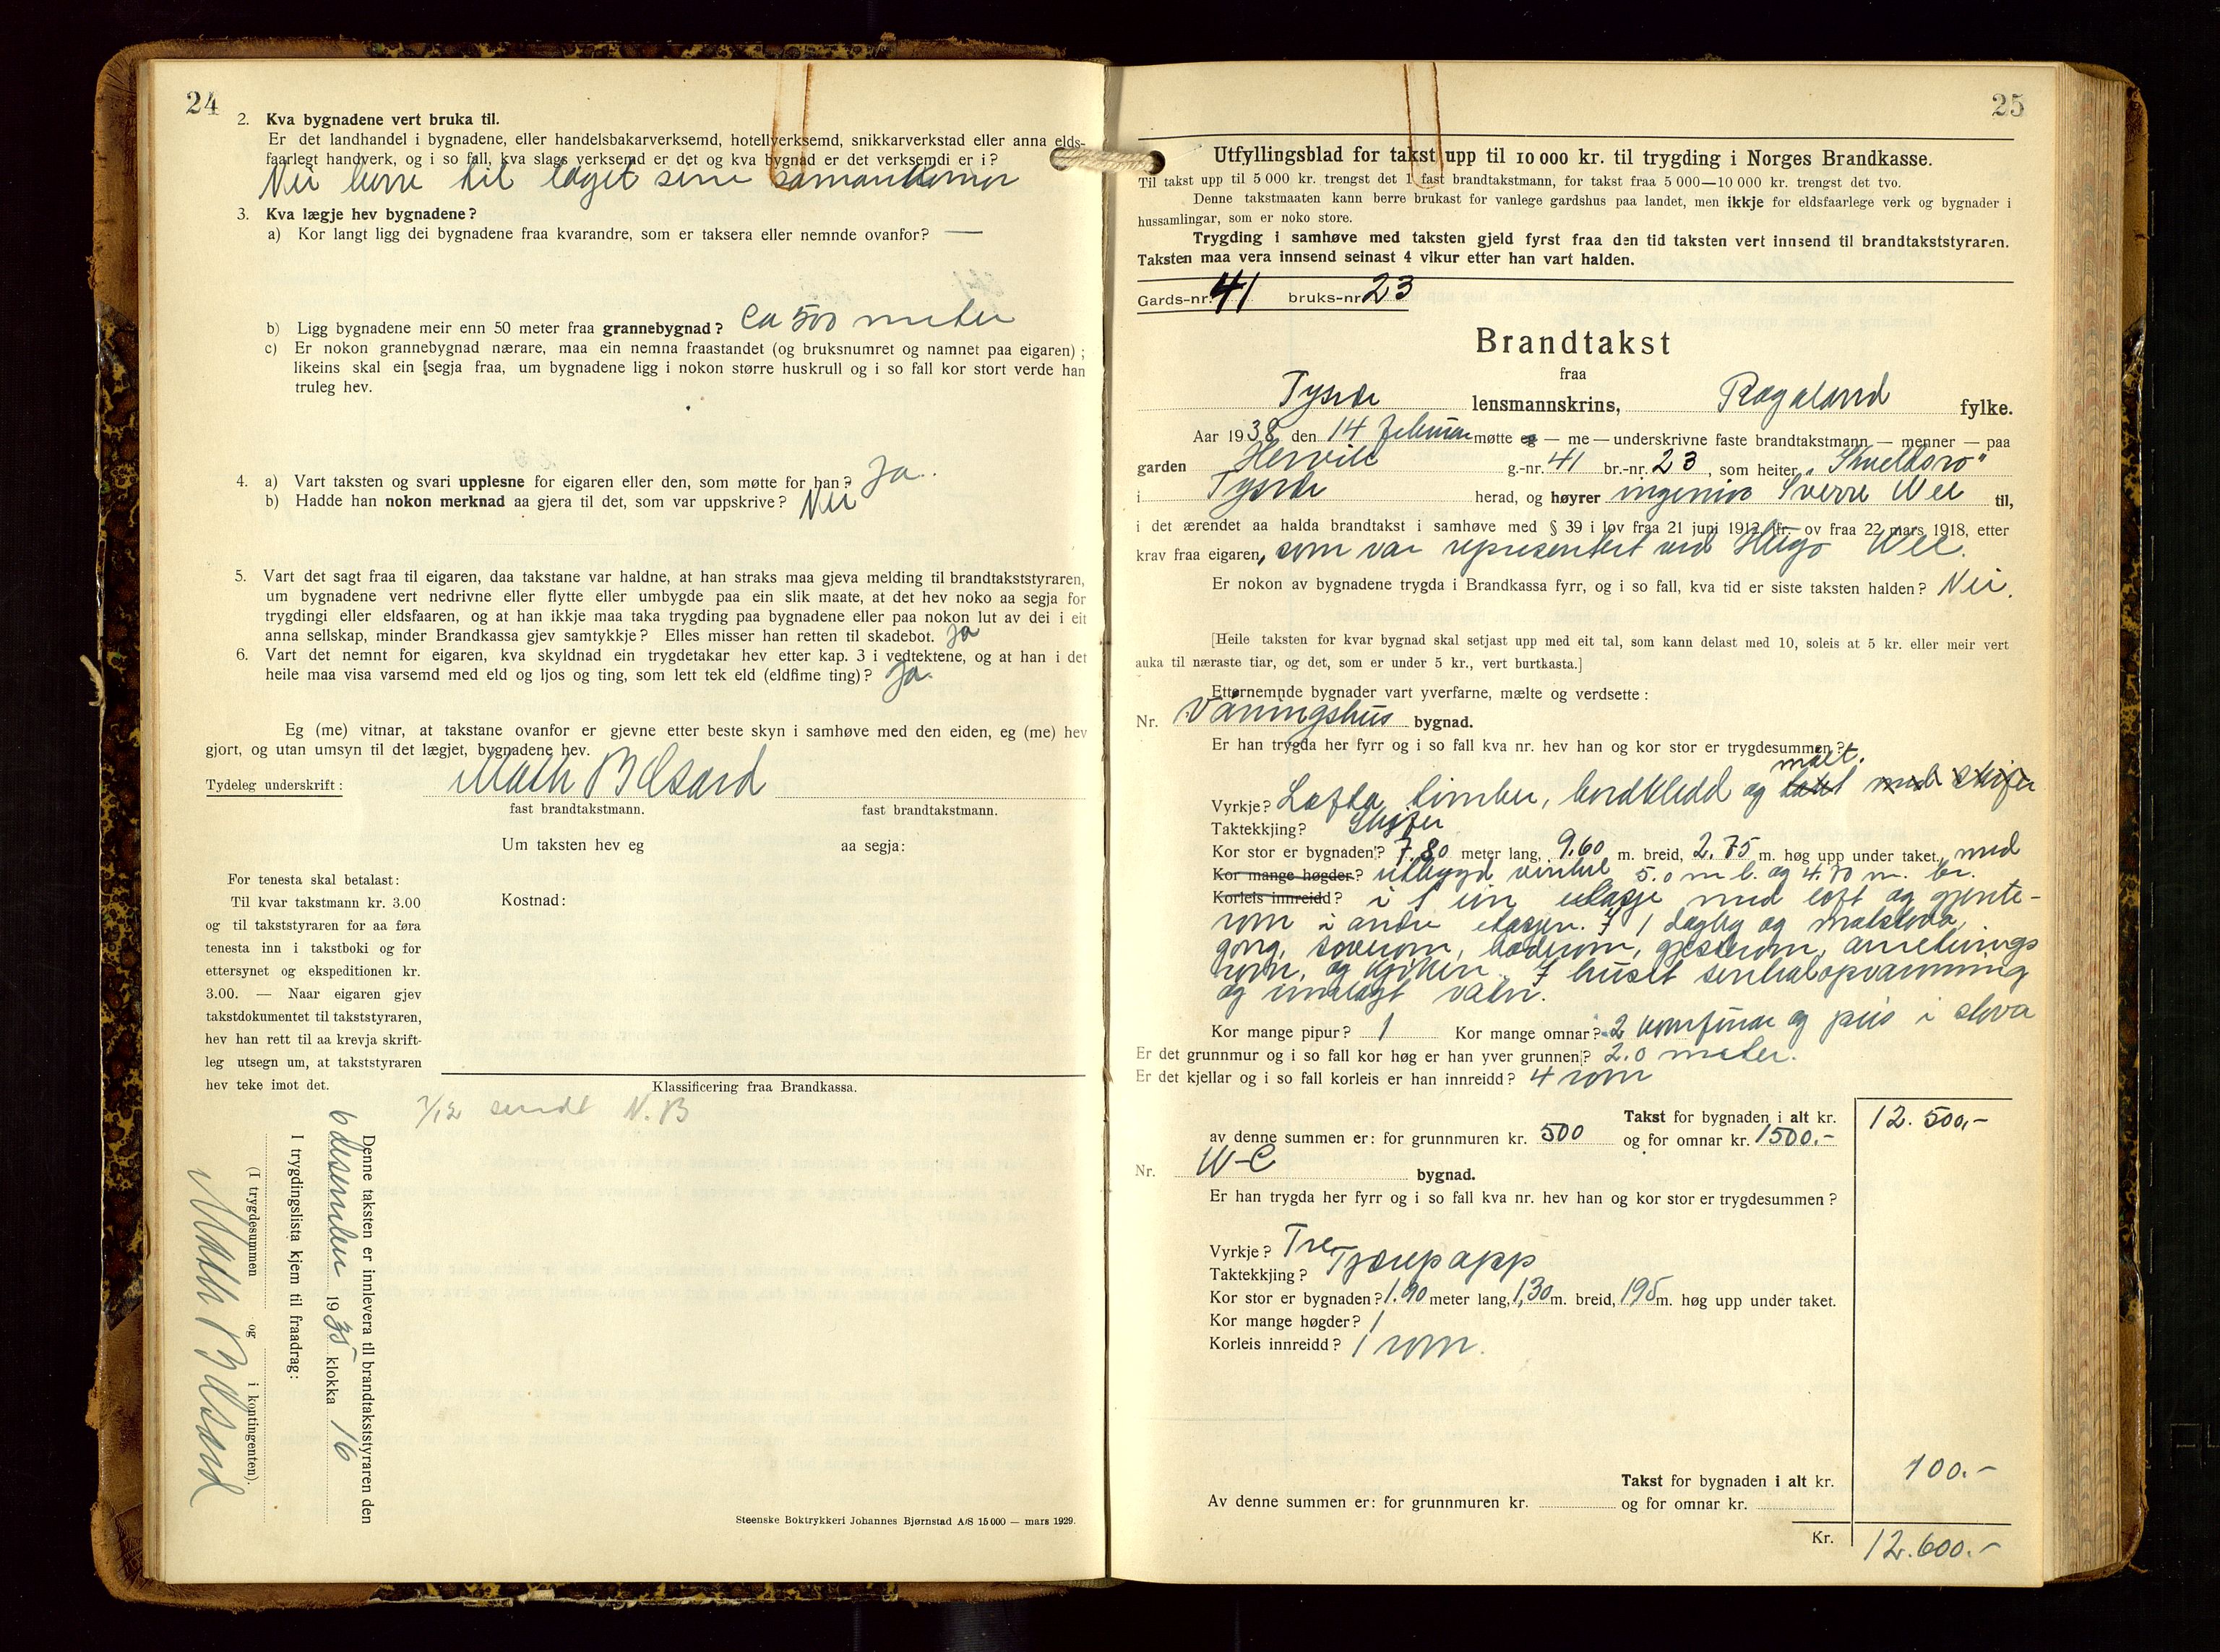 24
2. Kva bygnadene vert bruka til.
Er det landhandel i bygnadene, eller handelsbakarverksemd, hotellverksemd, snikkarverkstad eller anna elds-
faarlegt handverk, og i so fall, kva slags verksemd er det og kva bygnad er det verksemdi er i?
Nei berre til laget sine samankomor
3. Kva lægje hev bygnadene?
a) Kor langt ligg dei bygnadene fraa kvarandre, som er taksera eller nemnde ovanfor? —
b) Ligg bygnadene meir enn 50 meter fraa grannebygnad? Ca 500 meter
c) Er nokon grannebygnad nærare, maa ein nemna fraastandet (og bruksnumret og namnet paa eigaren);
likeins skal ein segja fraa, um bygnadene ligg i nokon større huskrull og i so fall kor stort verde han
truleg hev.
4. a) Vart taksten og svari upplesne for eigaren eller den, som møtte for han? Ja.
b) Hadde han nokon merknad aa gjera til det, som var uppskrive? Nei
5. Vart det sagt fraa til eigaren, daa takstane var haldne, at han straks maa gjeva melding til brandtakststyraren,
um bygnadene vert nedrivne eller flytte eller umbygde paa ein slik maate, at det hev noko aa segja for
trygdingi eller eldsfaaren, og at han ikkje maa taka trygding paa bygnadene eller paa nokon lut av dei i eit
anna sellskap, minder Brandkassa gjev samtykkje? Elles misser han retten til skadebot. Ja
6. Vart det nemnt for eigaren, kva skyldnad ein trygdetakar hev etter kap. 3 i vedtektene, og at han i det
heile maa visa varsemd med eld og ljos og ting, som lett tek eld (eldfime ting)? Ja.
Eg (me) vitnar, at takstane ovanfor er gjevne etter beste skyn i samhøve med den eiden, eg (me) hev
gjort, og utan umsyn til det lægjet, bygnadene hev.
Tydeleg underskrift: Math B
fast brandtakstmann. fast brandtakstmann.
Um taksten hev eg aa segja:
For tenesta skal betalast:
Til kvar takstmann kr. 3.00
og til takststyraren for aa føra
tenesta inn i takstboki og for
ettersynet og ekspeditionen kr.
3.00. — Naar eigaren gjev
takstdokumentet til takststyraren,
hev han rett til aa krevja skrift-
leg utsegn um, at takststyraren
hev teke imot det.
Kostnad:
Klassificering fraa Brandkassa.
7/12 sendt N.B
Denne taksten er innlevera til brandtakststyraren den
6 desember 1935 klokka 16
I trygdingslista kjem til fraadrag:
(I trygdesummen og i kontingenten).
Math B
Steenske Boktrykkeri Johannes Bjørnstad A/S 15 000 — mars 1929.
25
Utfyllingsblad for takst upp til 10 000 kr. til trygding i Norges Brandkasse.
Til takst upp til 5 000 kr. trengst det 1 fast brandtakstmann, for takst fraa 5 000—10 000 kr. trengst det tvo.
Denne takstmaaten kann berre brukast for vanlege gardshus paa landet, men ikkje for eldsfaarlege verk og bygnader i
hussamlingar, som er noko store.
Trygding i samhøve med taksten gjeld fyrst fraa den tid taksten vert innsend til brandtakststyraren.
Taksten maa vera innsend seinast 4 vikur etter han vart halden.
Gards-nr. 41 bruks-nr 23
Brandtakst
fraa
Tysvær lensmannskrins, Rogaland fylke.
Aar 1938 den 14 februar møtte eg — me — underskrivne faste brandtakstmann — menner — paa
garden Hervik g.-nr. 41 br.-nr. 23, som heiter
i Tysvær herad, og høyrer ingeniør Sverre Wee til,
i det ærendet aa halda brandtakst i samhøve med § 39 i lov fraa 21 juni 1912, jfr. ov fraa 22 mars 1918, etter
krav fraa eigaren, som var representert ved Hugo Wee.
Er nokon av bygnadene trygda i Brandkassa fyrr, og i so fall, kva tid er siste taksten halden? Nei.
[Heile taksten for kvar bygnad skal setjast upp med eit tal, som kann delast med 10, soleis at 5 kr. eller meir vert
auka til næraste tiar, og det, som er under 5 kr., vert burtkasta.]
Etternemnde bygnader vart yverfarne, mælte og verdsette:
Nr. Våningshus bygnad.
Er han trygda her fyrr og i so fall kva nr. hev han og kor stor er trygdesummen?
malt.
Vyrkje? Lafta timber, bordkledd og takt med skifer
Taktekkjing? Skifer
Kor stor er bygnaden? 7.80 meter lang, 9.60 m. breid, 2.75 m. høg upp under taket, med
Kor mange høgder? utbygd vinkel 5.0 m l. og 4.70 m. br.
Korleis innreidd? i 1 ein etasje med loft og gjente-
rom i andre etasjen. I 1 dagleg og matstova,
gong, soverom, baderom, gjesterom, anretnings
rom, og kjøken. I huset sentralopvarmning
og innlagt vatn.
Kor mange pipur? 1 Kor mange omnar? 2 komfurar og peis i stova
Er det grunnmur og i so fall kor høg er han yver grunnen? 2.0 meter.
Er det kjellar og i so fall korleis er han innreidd? 4 rom
Takst for bygnaden i alt kr. 12.500,-
av denne summen er: for grunnmuren kr. 500 og for omnar kr. 1500.-
Nr. W-C bygnad.
Er han trygda her fyrr og i so fall kva nr. hev han og kor stor er trygdesummen?
Vyrkje? Tre
Taktekkjing? Tjærepapp
Kor stor er bygnaden? 1.90 meter lang, 1,30 m. breid, 195 m. høg upp under taket.
Kor mange høgder? 1
Korleis innreidd? 1 rom.
Takst for bygnaden i alt kr. 100.-
Av denne summen er: for grunnmuren kr. og for omnar kr.
Kr. 12.600.-